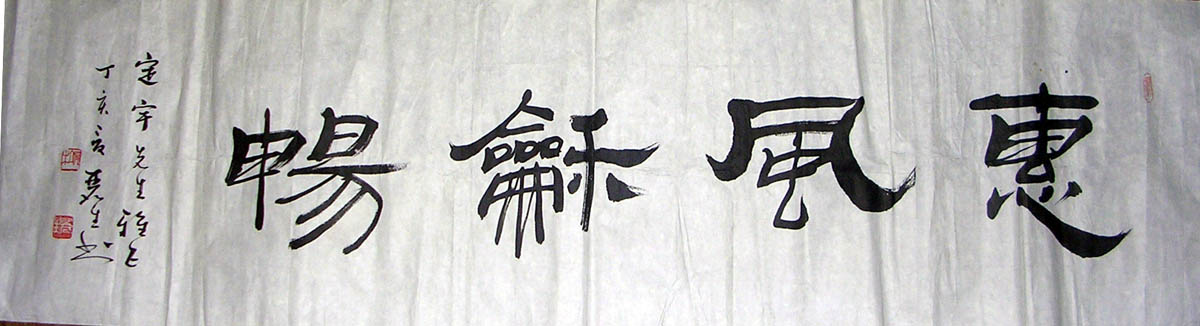 惠風龢暢
定宇先生雅正
丁亥生书